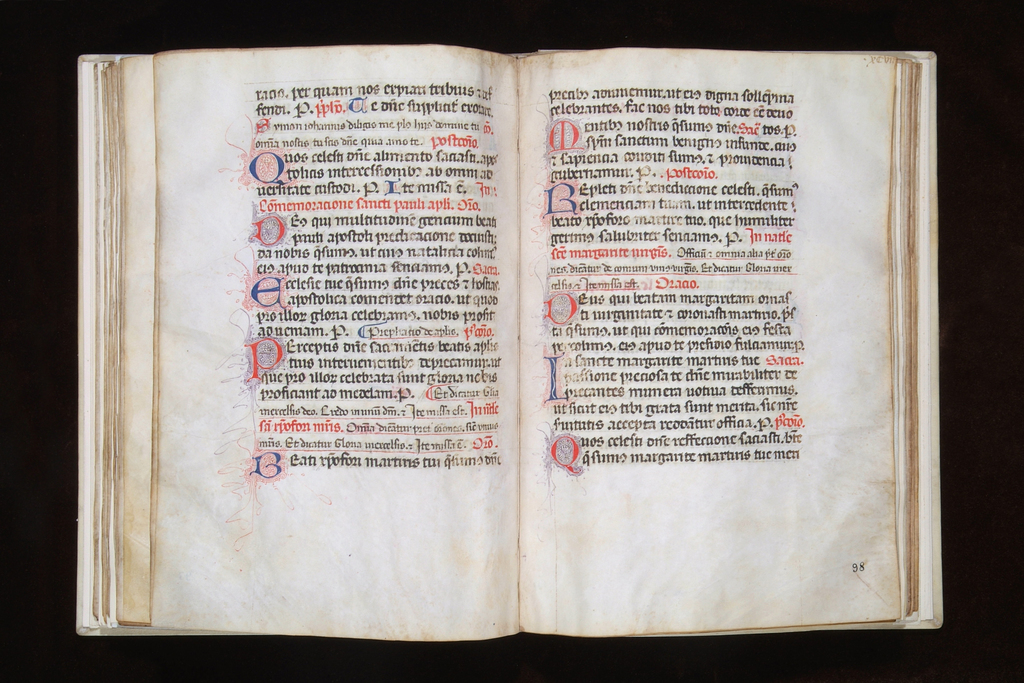 racis. per quam nos expiari tribuis et
fendi. P.
e dñe supplicit
Symon iohannis diligis me plus hiis domine tu
omnia nosti tu scis dñe quia amo te. Postcõio.
Quos celesti dñe alimento saciasti. apo
stolicis intercessionibus ab omni ad
uersitate custodi. P. Ite missa ẽ. In
Cõmemoracione sancti pauli apli. Oro.
Deus qui multitudinẽ gencium beati
pauli apostoli predicacione docuisti
da nobis qsumus. ut cuius natalicia colimus
eius apud te patrocinia senciamus. P. Sacra.
Ecclesie tue qsumus dñe preces et hostias
apostolica comendet oracio. ut quod
pro illor gloria celebramus. nobis prosit
ad ueniam. P. Prephatio de aplis. pʼcõio.
Perceptis dñe sacramentis beatis aplis
tuis interuenientibus deprecamur. ut
que pro illor celebrata sunt gloria nobis
proficiant ad medelam. P. Et dicatur Glia
inexcelsis deo. Credo in unũ dm. et Ite missa est. In natle
sci xpofori mris. Omnia dicãtur preter oiones. sic unius
mris. Et dicatur Gloria inexcelsis. et Ite missa ẽ. Oro.
Beati xpofori martiris tui qsumus dñe
precibus adiuuemur. ut eius digna sollepnia
celebrantes. fac nos tibi toto corde eẽ deuo
Mentibus nostris qsumus dñe. Sac tos. P.
spm sanctum benignus infunde. cuius
et sapiencia conditi sumus. et prouidencia
gubernamur. P. Postcõio.
Repleti dñe benediccione celesti. qsumus
clemenciam tuam. ut intercedente
beato xpoforo martire tuo. que humiliter
gerimus salubriter senciamus. P. In natle
scẽ margarite uirgis. Officiũ et omnia alia pt oro
nes. dicãtur de comuni unius uirgis. Et dicatur Gloria inex
celsis. et Ite missa est. Oracio.
Deus qui beatam margaritam ornas
ti uirginitate et coronasti martirio. ps
ta qsumus. ut qui cõmemoracõis eius festa
percolimus. eius apud te presidio fulciamur. P.
In sancte margarite martiris tue Sacra.
passione preciosa te dñe mirabiliter de
precantes munera uotiua defferimus.
ut sicut eius tibi grata sunt merita. sic nre
seruitutis accepta reddãtur officia. P. pʼcõio.
Quos celesti dñe reffeccione saciasti. bte
qsumus margarite martiris tue meri
98